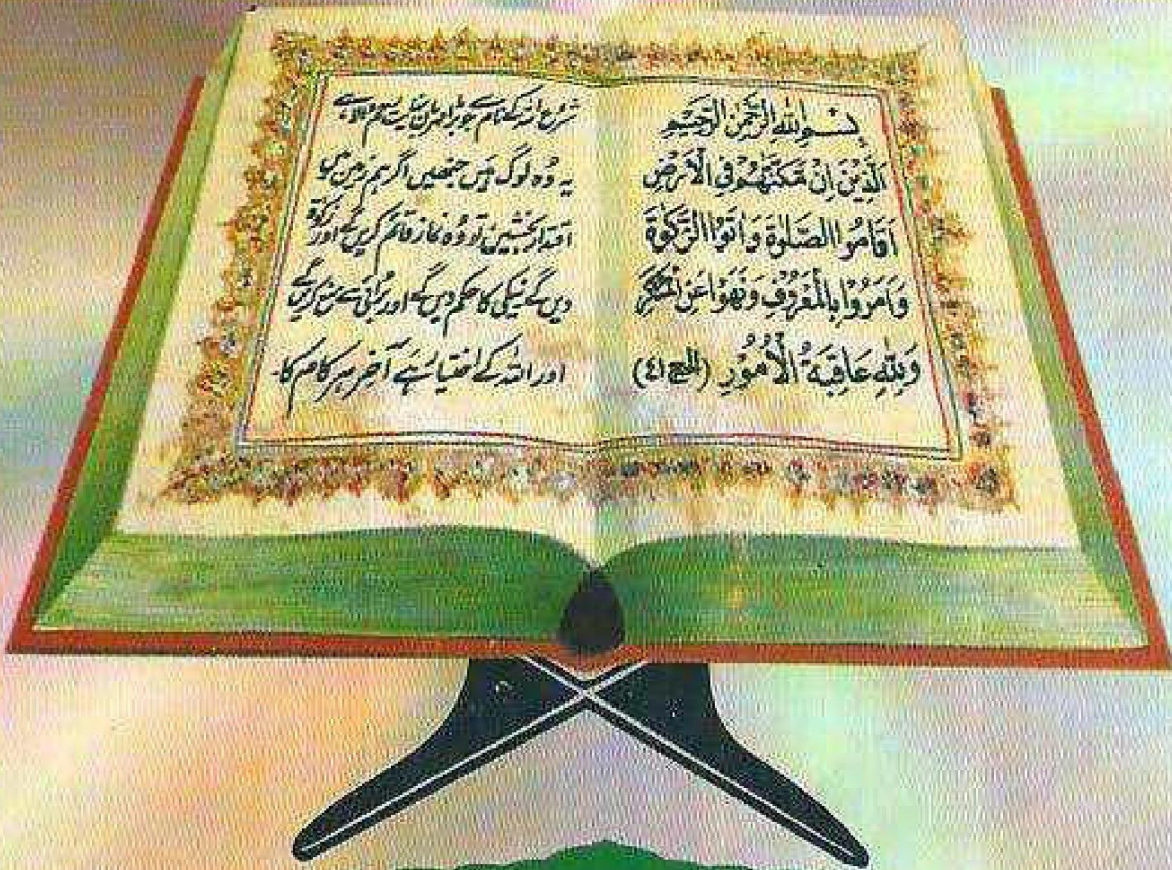 بِسْمِ اللهِ الرَّحْمٰنِ الرَّحِيْمِ
اَلَّذِيْنَ اِنْ مَّكَّنّٰهُمْ فِي الْاَرْضِ
اَقَامُوا الصَّلٰوةَ وَاٰتَوُا الزَّكٰوةَ
وَاَمَرُوْا بِالْمَعْرُوْفِ وَنَهَوْا عَنِ الْمُنْكَرِ
وَلِلّٰهِ عَاقِبَةُ الْاُمُوْرِ (الحج ٤١)
شروع اللہ کے نام سے جو بڑا مہربان نہایت رحم والا ہے
یہ وُہ لوگ ہیں جنھیں اگر ہم زمین میں
اقتدار بخشیں تو وُہ نماز قائم کریں گے اور زکوٰۃ
دیں گے نیکی کا حکم دیں گے اور بُرائی سے منع کریں گے
اور اللہ کے اختیار میں ہے آخر ہر کام کا۔